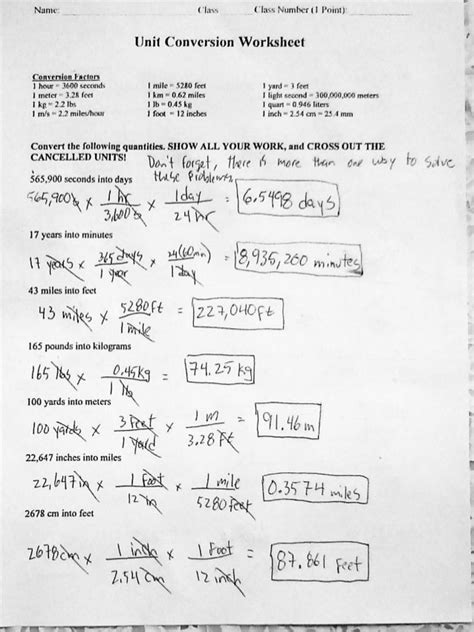 Name: Class Class Number (1 Point):
Unit Conversion Worksheet
Conversion Factors
1 hour = 3600 seconds 1 mile = 5280 feet 1 yard = 3 feet
1 meter = 3.28 feet 1 km = 0.62 miles 1 light second = 300,000,000 meters
1 kg = 2.2 lbs 1 lb = 0.45 kg 1 quart = 0.946 liters
1 m/s = 2.2 miles/hour 1 foot = 12 inches 1 inch = 2.54 cm = 25.4 mm
Convert the following quantities. SHOW ALL YOUR WORK, and CROSS OUT THE
CANCELLED UNITS! Don't forget, there is more than one way to solve
these problems.
565,900 seconds into days
565,900s × 1 hr / 3,600s × 1 day / 24 hr = 6.5498 days
17 years into minutes
17 years × 365 days / 1 year × 24(60min) / 1 day = 8,935,200 minutes
43 miles into feet
43 miles × 5280ft / 1 mile = 227,040ft
165 pounds into kilograms
165 lbs × 0.45kg / 1 lb = 74.25 kg
100 yards into meters
100 yards × 3 feet / 1 yard × 1 m / 3.28 ft = 91.46 m
22,647 inches into miles
22,647in × 1 foot / 12 in × 1 mile / 5280 feet 0.3574 miles
2678 cm into feet
2678cm × 1 inch / 2.54 cm × 1 foot / 12 inch = 87.861 feet